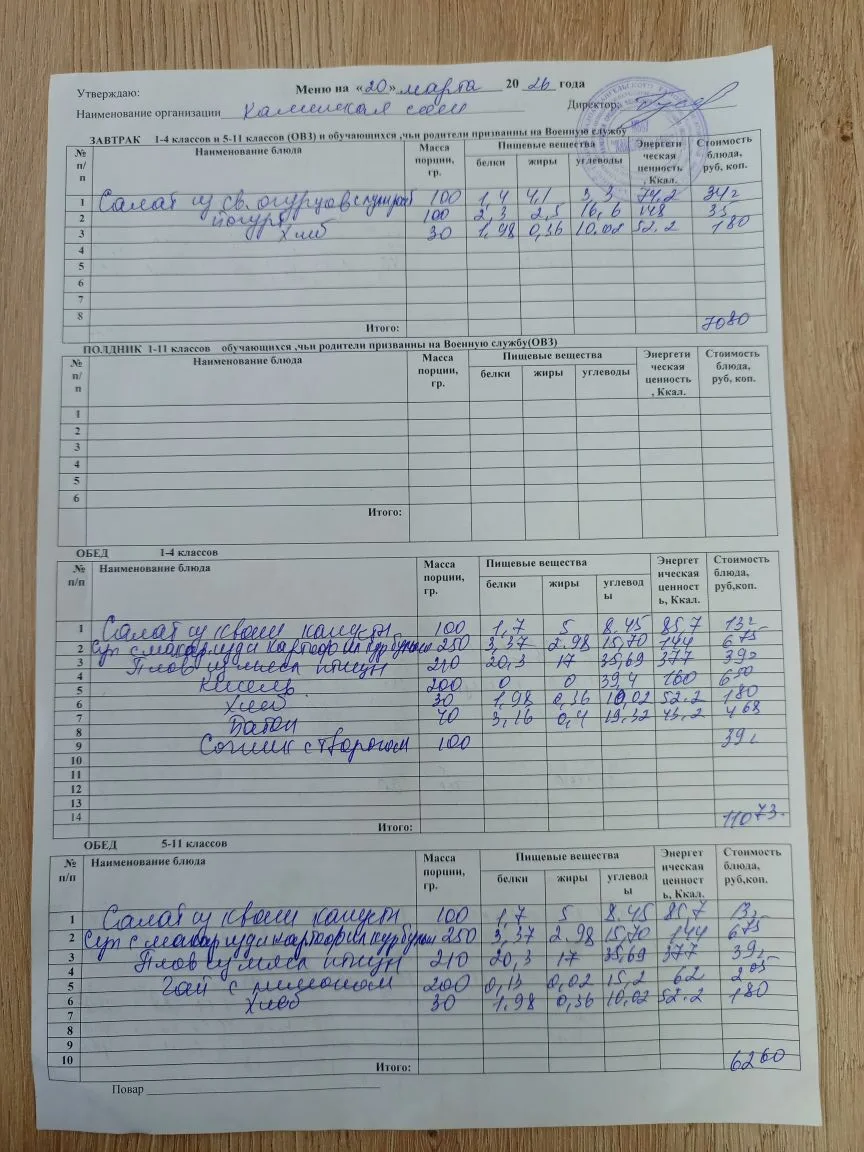 Утверждаю: Меню на «20» марта 2026 года
Наименование организации Каменская сош Директор
ЗАВТРАК 1-4 классов и 5-11 классов (ОВЗ) и обучающихся ,чьи родители призванны на Военную службу
№ п/п Наименование блюда Масса порции, гр. Пищевые вещества белки жиры углеводы Энергети ческая ценность , Ккал. Стоимость блюда, руб, коп.
1 Салат из св. огурцов 100 1,4 4,1 3,3 74,2 34
2 йогурт 100 2,3 2,5 16,6 148 35
3 Хлеб 30 1,98 0,36 10.02 52.2 180
4
5
6
7
8
Итого: 7080
ПОЛДНИК 1-11 классов обучающихся ,чьи родители призванны на Военную службу(ОВЗ)
№ п/п Наименование блюда Масса порции, гр. Пищевые вещества белки жиры углеводы Энергети ческая ценность , Ккал. Стоимость блюда, руб, коп.
1
2
3
4
5
6
Итого:
ОБЕД 1-4 классов
№ п/п Наименование блюда Масса порции, гр. Пищевые вещества белки жиры углевод ы Энергет ическая ценност ь, Ккал. Стоимость блюда, руб,коп.
1 Салат из кваш капусты 100 1,7 5 8.45 85,7 13
2 Суп с макар изд и картоф на кур бульоне 250 3,37 2.98 15,70 144 675
3 Плов из мяса птицы 210 20,3 17 35,69 377 39
4
5 Кисель 200 0 0 39,4 160 650
6 Хлеб 30 1,98 0,36 10,02 52.2 180
7 Батон 40 3,16 0,4 19.32 43.2 468
8
9 Сочник с творогом 100 39
10
11
12
13
14
Итого: 11073
ОБЕД 5-11 классов
№ п/п Наименование блюда Масса порции, гр. Пищевые вещества белки жиры углевод ы Энергет ическая ценност ь, Ккал. Стоимость блюда, руб,коп.
1 Салат из кваш капусты 100 1,7 5 8.45 85,7 13
2 Суп с макар изд и картоф на кур бульон 250 3,37 2.98 15,70 144 675
3 Плов из мяса птицы 210 20,3 17 35,69 377 39
4
5 Чай с лимоном 200 0,13 0,02 15,2 62 205
6 Хлеб 30 1.98 0,36 10,02 52.2 180
7
8
9
10
Итого: 6260
Повар